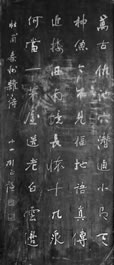 萬古仇池穴潛通小有天
神魚不見福地語真傳
近接西南境長懷十九泉
何當一茅屋送老白雲邊
杜甫秦州雜詩